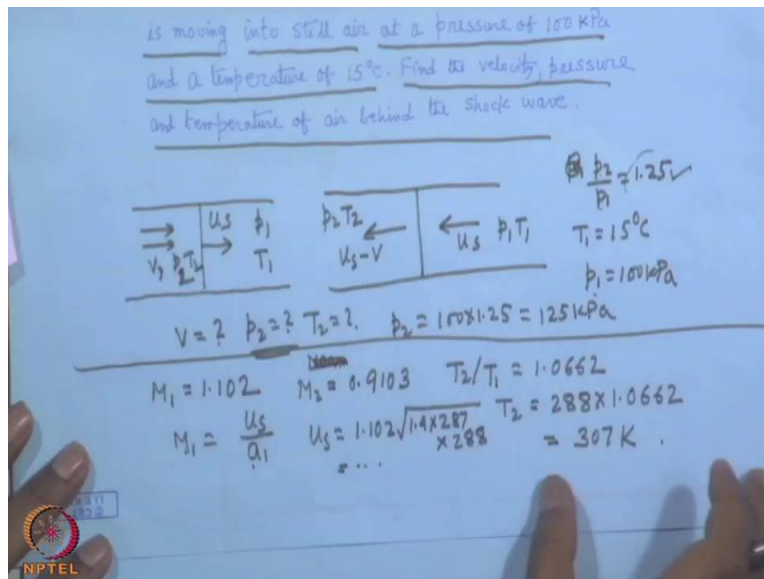 is moving into still air at a pressure of 100 kPa
and a temperature of 15°C. Find the velocity, pressure
and temperature of air behind the shock wave.
p2/p1 = 1.25 ✓
T1 = 15°C
p1 = 100 kPa
V, p2 T2 Us p1 T1
p2 T2 Us-V Us p1 T1
V = ? p2 = ? T2 = ? p2 = 100×1.25 = 125 kPa
M1 = 1.102 M2 = 0.9103 T2/T1 = 1.0662
M1 = Us/a1 Us = 1.102 √1.4×287×288 T2 = 288×1.0662
= ... = 307 K.
NPTEL